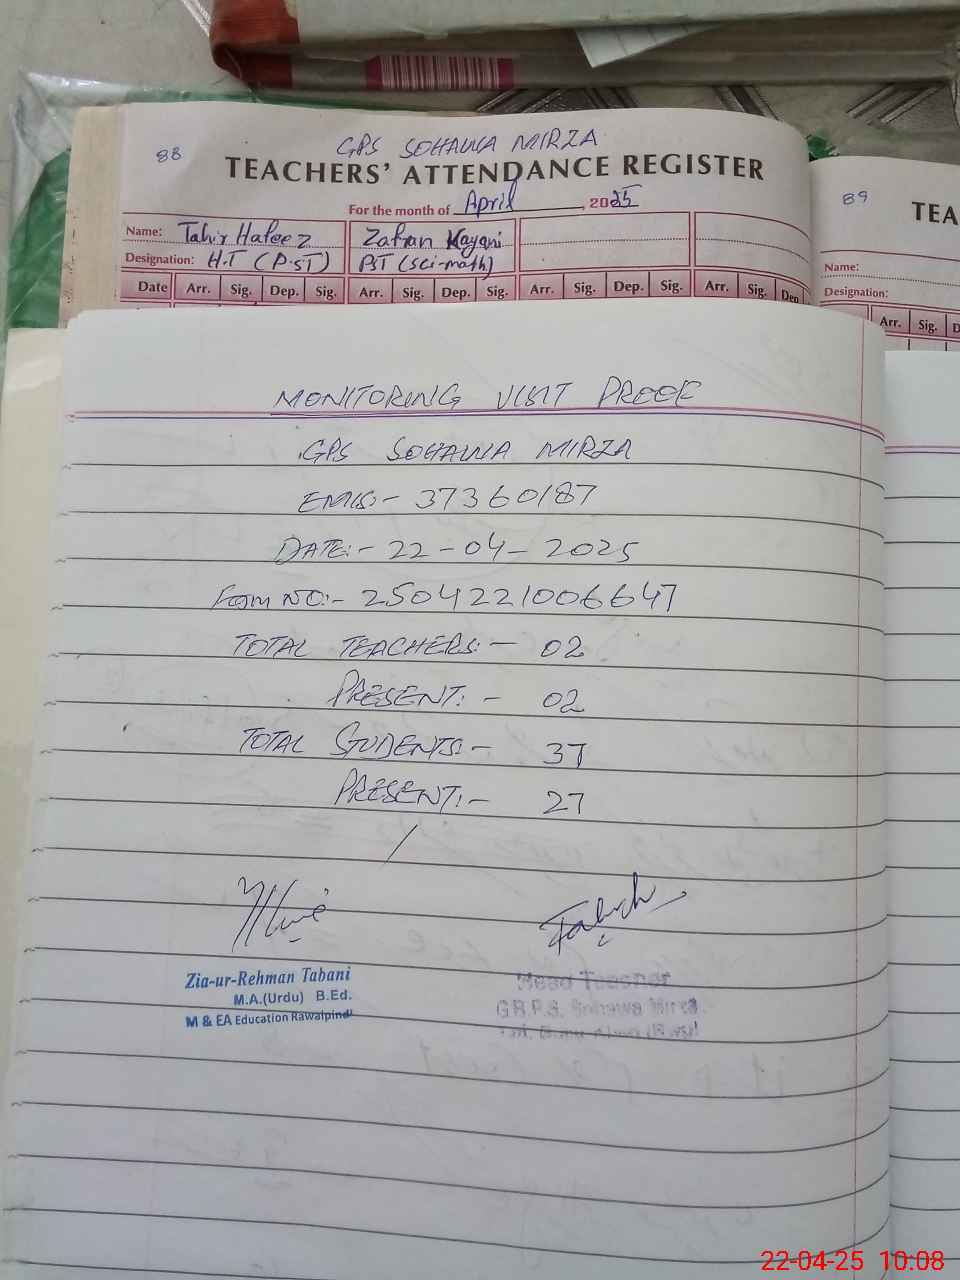 88
GPS SOHAWA MIRZA
TEACHERS' ATTENDANCE REGISTER
For the month of April, 2025
Name: Tahir Hafeez Zafran Kayani
Designation: H.T (P.ST) PST (sci-math)
Date Arr. Sig. Dep. Sig. Arr. Sig. Dep. Sig. Arr. Sig. Dep. Sig. Arr. Sig. Dep
89
TEA
Name:
Designation:
Arr. Sig. D
MONITORING VISIT PROOF
GPS SOHAWA MIRZA
EMIS:- 37360187
DATE:- 22-04-2025
Form NO:- 2504221006647
TOTAL TEACHERS:- 02
PRESENT:- 02
TOTAL STUDENTS:- 37
PRESENT:- 27
Zia-ur-Rehman Tabani
M.A.(Urdu) B.Ed.
M & EA Education Rawalpindi
Head Teacher
G.R.P.S. Sohawa Mirza
22-04-25 10:08